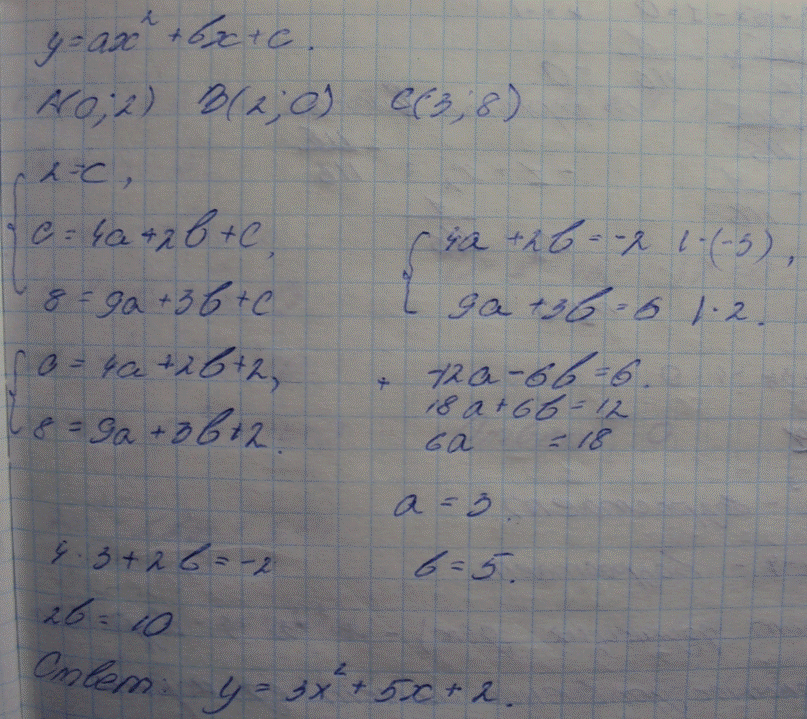 y = ax² + bx + c.
A(0;2) B(2;0) C(3;8)
{ 2 = c,
0 = 4a + 2b + c,
8 = 9a + 3b + c
{ 0 = 4a + 2b + 2,
8 = 9a + 3b + 2.
{ 4a + 2b = -2 | ·(-3),
9a + 3b = 6 | ·2.
+ -12a - 6b = 6.
18a + 6b = 12
6a = 18
a = 3.
4·3 + 2b = -2
b = 5.
2b = 10
Ответ: y = 3x² + 5x + 2.